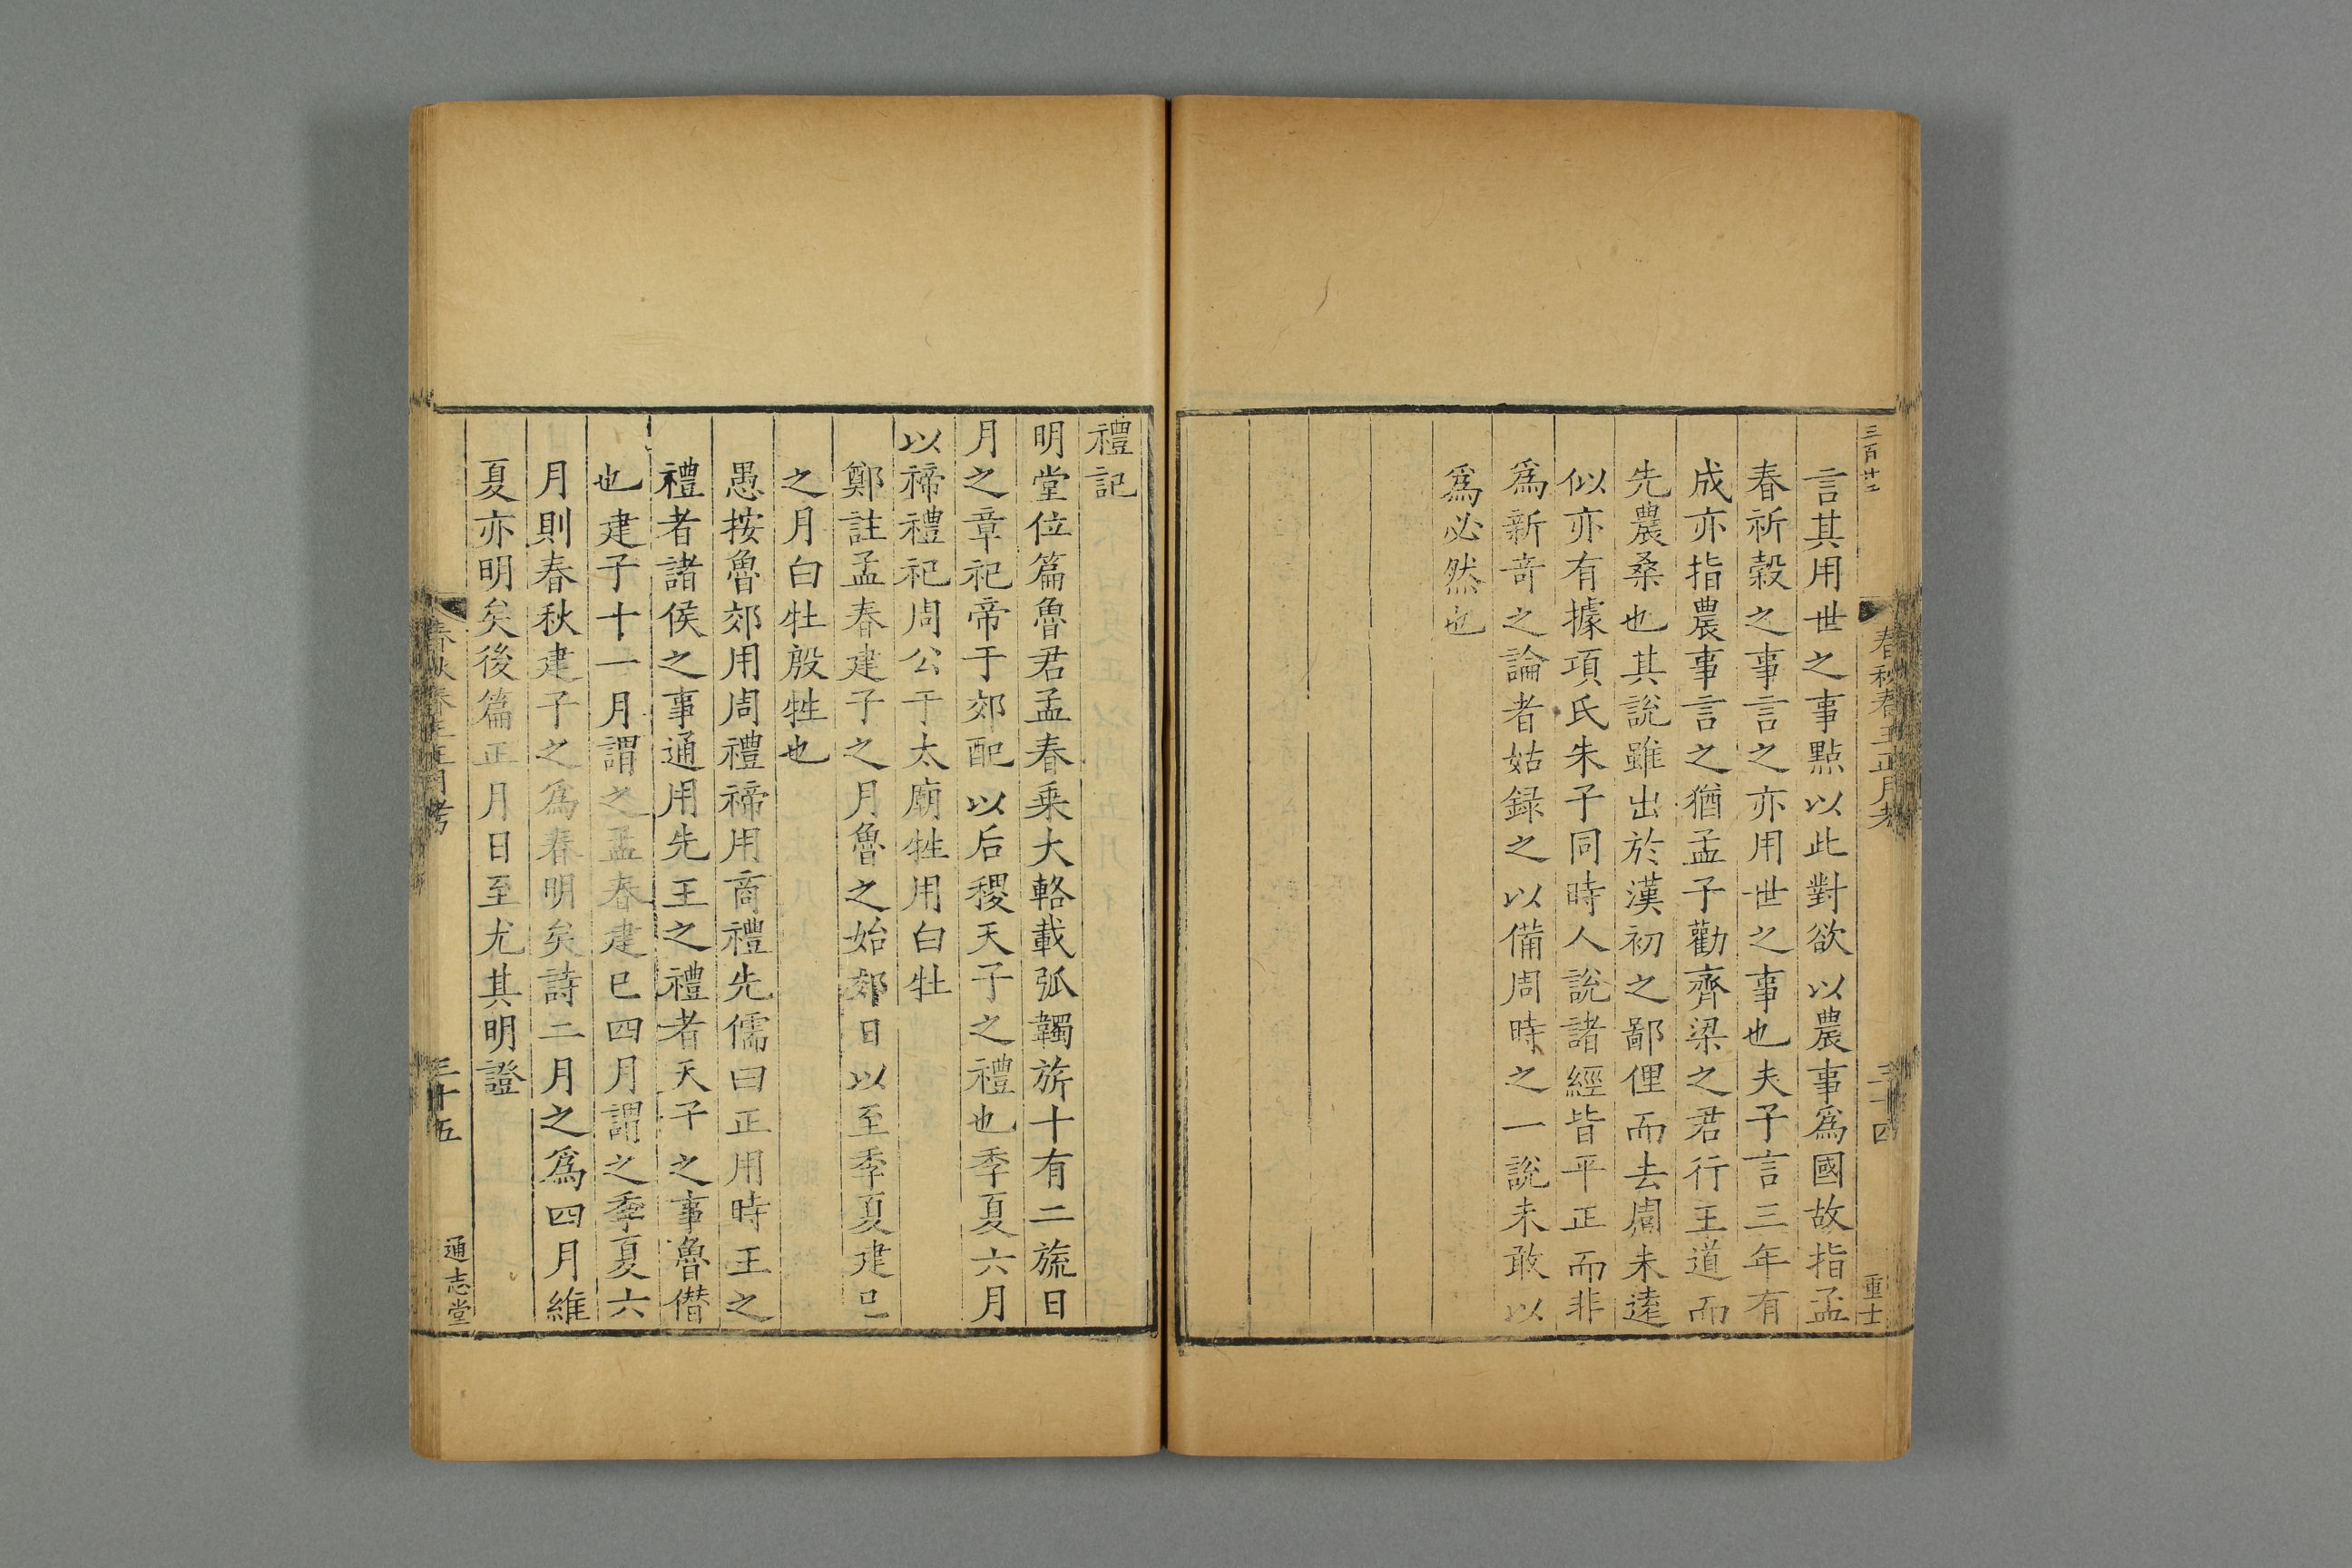 三百廿二
春秋春王正月考
三十四
言其用世之事點以此對欲以農事爲國故指孟
春祈穀之事言之亦用世之事也夫子言三年有
成亦指農事言之猶孟子勸齊梁之君行王道而
先農桑也其説雖出於漢初之鄙俚而去周未遠
似亦有據項氏朱子同時人説諸經皆平正而非
爲新竒之論者姑録之以備周時之一説未敢以
爲必然也
禮記
明堂位篇魯君孟春乗大輅載弧韣旂十有二旒日
月之章祀帝于郊配以后稷天子之禮也季夏六月
以禘禮祀周公于太廟牲用白牡
鄭註孟春建子之月魯之始郊日以至季夏建巳
之月白牡殷牲也
愚按魯郊用周禮禘用商禮先儒曰正用時王之
禮者諸侯之事通用先王之禮者天子之事魯僣
也建子十一月謂之孟春建巳四月謂之季夏六
月則春秋建子之爲春明矣詩二月之爲四月維
夏亦明矣後篇正月日至尤其明證
春秋春王正月考
三十五
通志堂